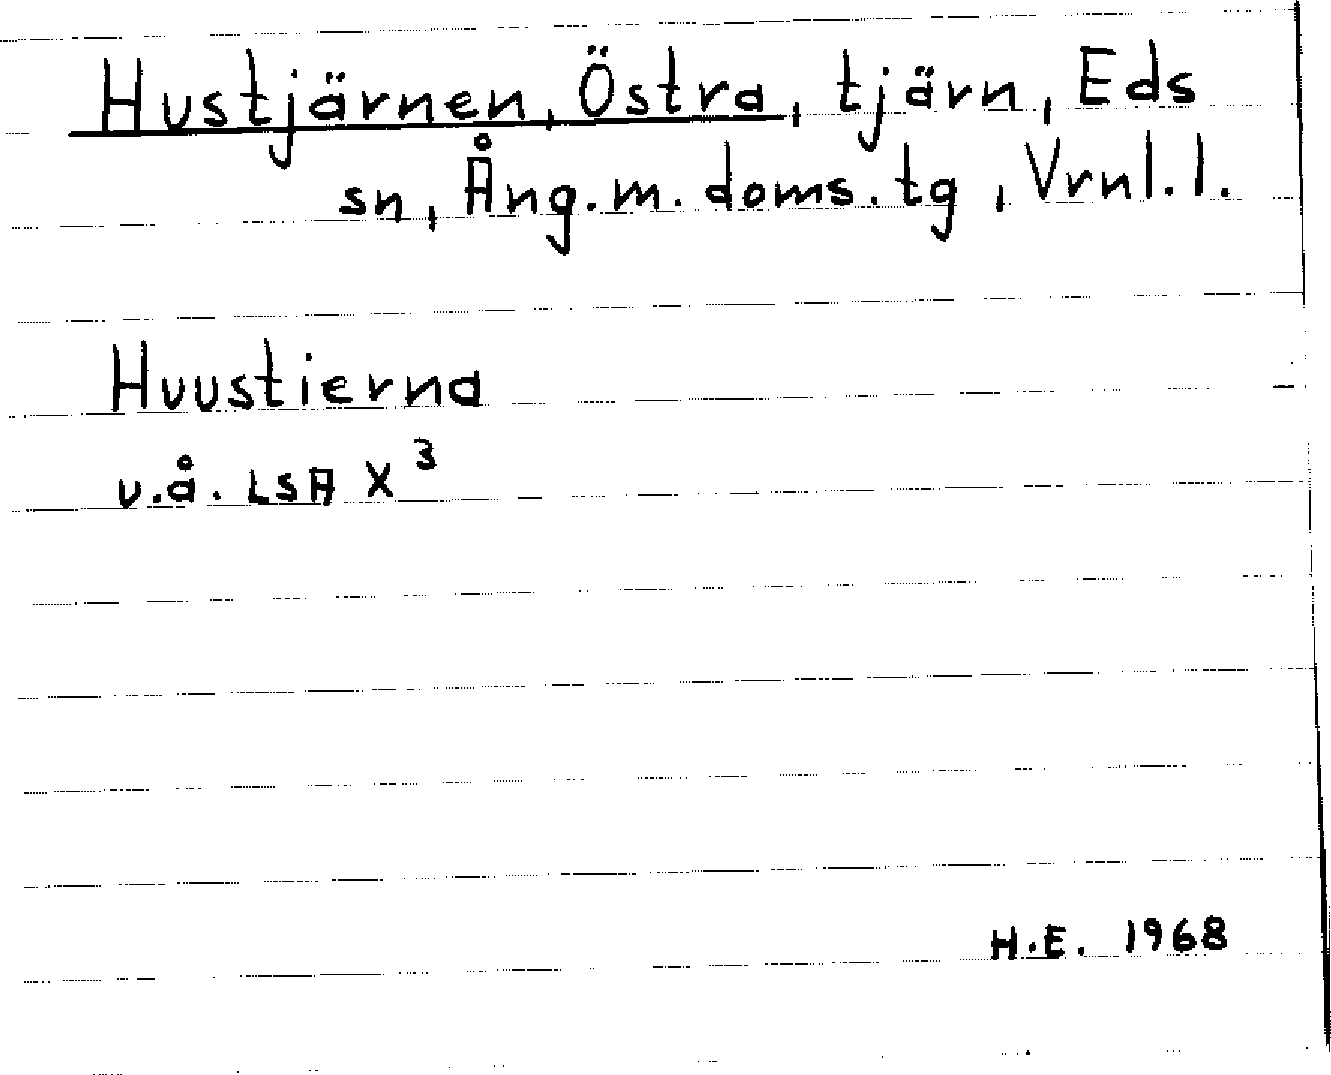 Hustjärnen, Östra, tjärn, Eds
sn, Ång.m. doms.tg, Vrnl.l.
Huustierna
u.å. LSA X³
H.E. 1968